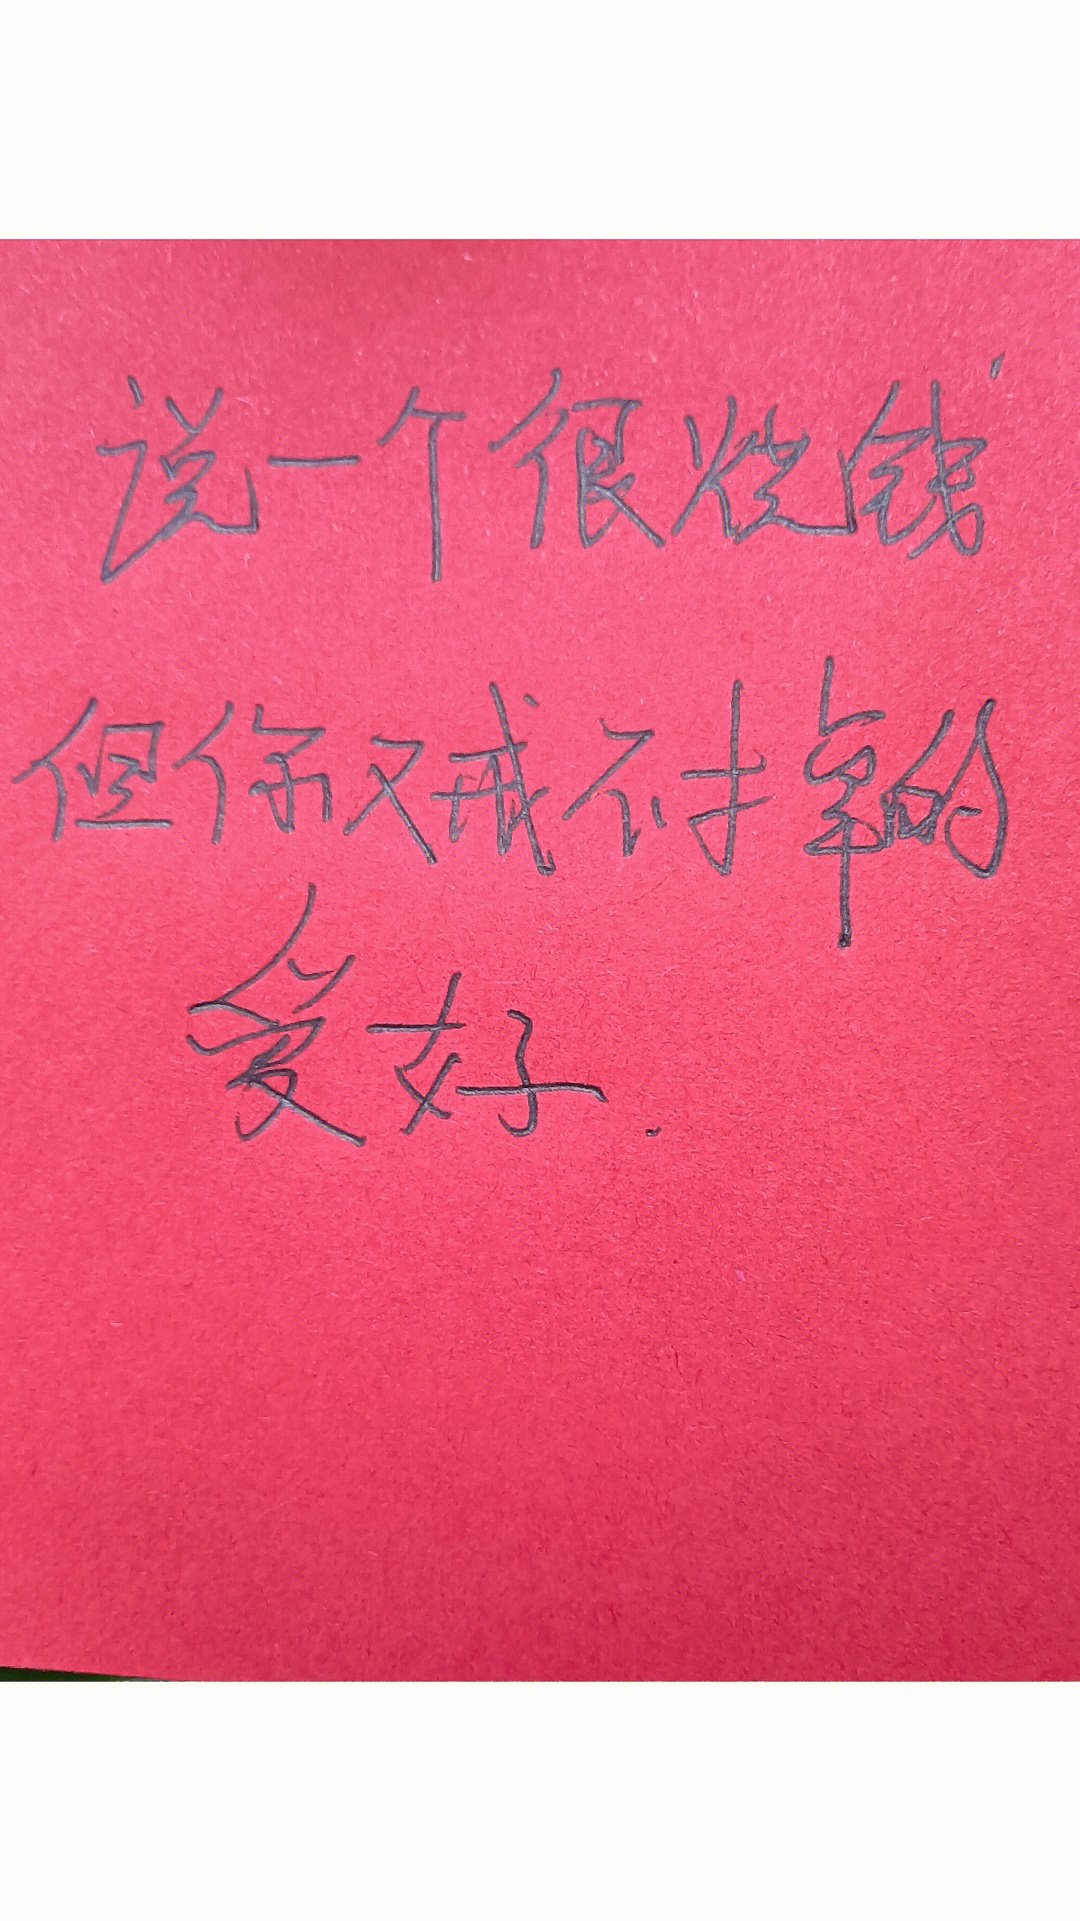 说一个很烧钱
但你又戒不掉的
爱好.